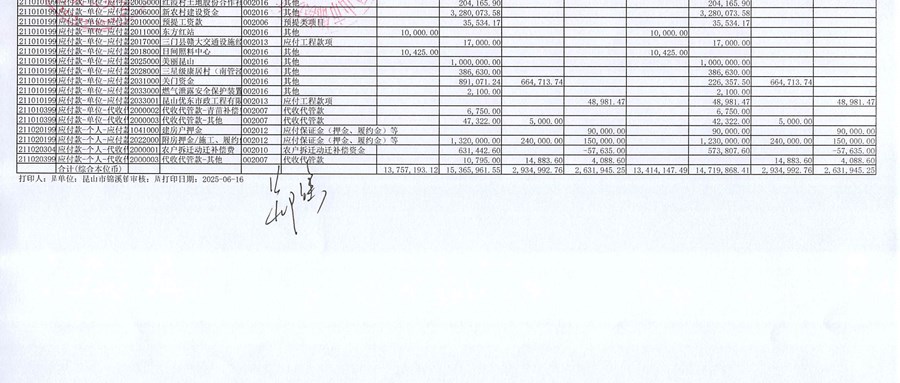 211010199 应付款-单位-应付款 2005000 红段村土地股份合作社 002016 其他 204,165.90 204,165.90
211010199 应付款-单位-应付款 2006000 新农村建设资金 002016 其他 3,280,073.58 3,280,073.58
211010199 应付款-单位-应付款 2010000 预提工资款 002006 预提类项目 35,534.17 35,534.17
211010199 应付款-单位-应付款 2011000 东方红站 002016 其他 10,000.00 10,000.00
211010199 应付款-单位-应付款 2017000 三门县赣大交通设施 002013 应付工程款项 17,000.00 17,000.00
211010199 应付款-单位-应付款 2018000 日间照料中心 002016 其他 10,425.00 10,425.00
211010199 应付款-单位-应付款 2025000 美丽昆山 002016 其他 1,000,000.00 1,000,000.00
211010199 应付款-单位-应付款 2028000 三星级康居村（南管泾 002016 其他 386,630.00 386,630.00
211010199 应付款-单位-应付款 2031000 关门资金 002016 其他 891,071.24 664,713.74 226,357.50 664,713.74
211010199 应付款-单位-应付款 2033000 燃气泄露安全保护装置 002016 其他 2,100.00 2,100.00
211010199 应付款-单位-应付款 2033001 昆山优东市政工程有限 002013 应付工程款项 48,981.47 48,981.47 48,981.47
211010399 应付款-单位-代收代 2000002 代收代管款-青苗补偿 002007 代收代管款 6,750.00 6,750.00
211010399 应付款-单位-代收代 2000003 代收代管款-其他 002007 代收代管款 47,322.00 5,000.00 42,322.00 5,000.00
211020199 应付款-个人-应付款 1041000 建房户押金 002012 应付保证金（押金、履约金）等 90,000.00 90,000.00 90,000.00
211020199 应付款-个人-应付款 2022000 附房押金/施工、履约 002012 应付保证金（押金、履约金）等 1,320,000.00 240,000.00 150,000.00 1,230,000.00 240,000.00 150,000.00
211020304 应付款-个人-代收代 2000001 农户拆迁动迁补偿费 002010 农户拆迁动迁补偿资金 631,442.60 -57,635.00 573,807.60 -57,635.00
211020399 应付款-个人-代收代 2000003 代收代管款-其他 002007 代收代管款 10,795.00 14,883.60 4,088.60 14,883.60 4,088.60
合计(综合本位币) 13,757,193.12 15,365,961.55 2,934,992.76 2,631,945.25 13,414,147.49 14,719,868.41 2,934,992.76 2,631,945.25
打印人：单位：昆山市锦溪镇审核：打印日期：2025-06-16